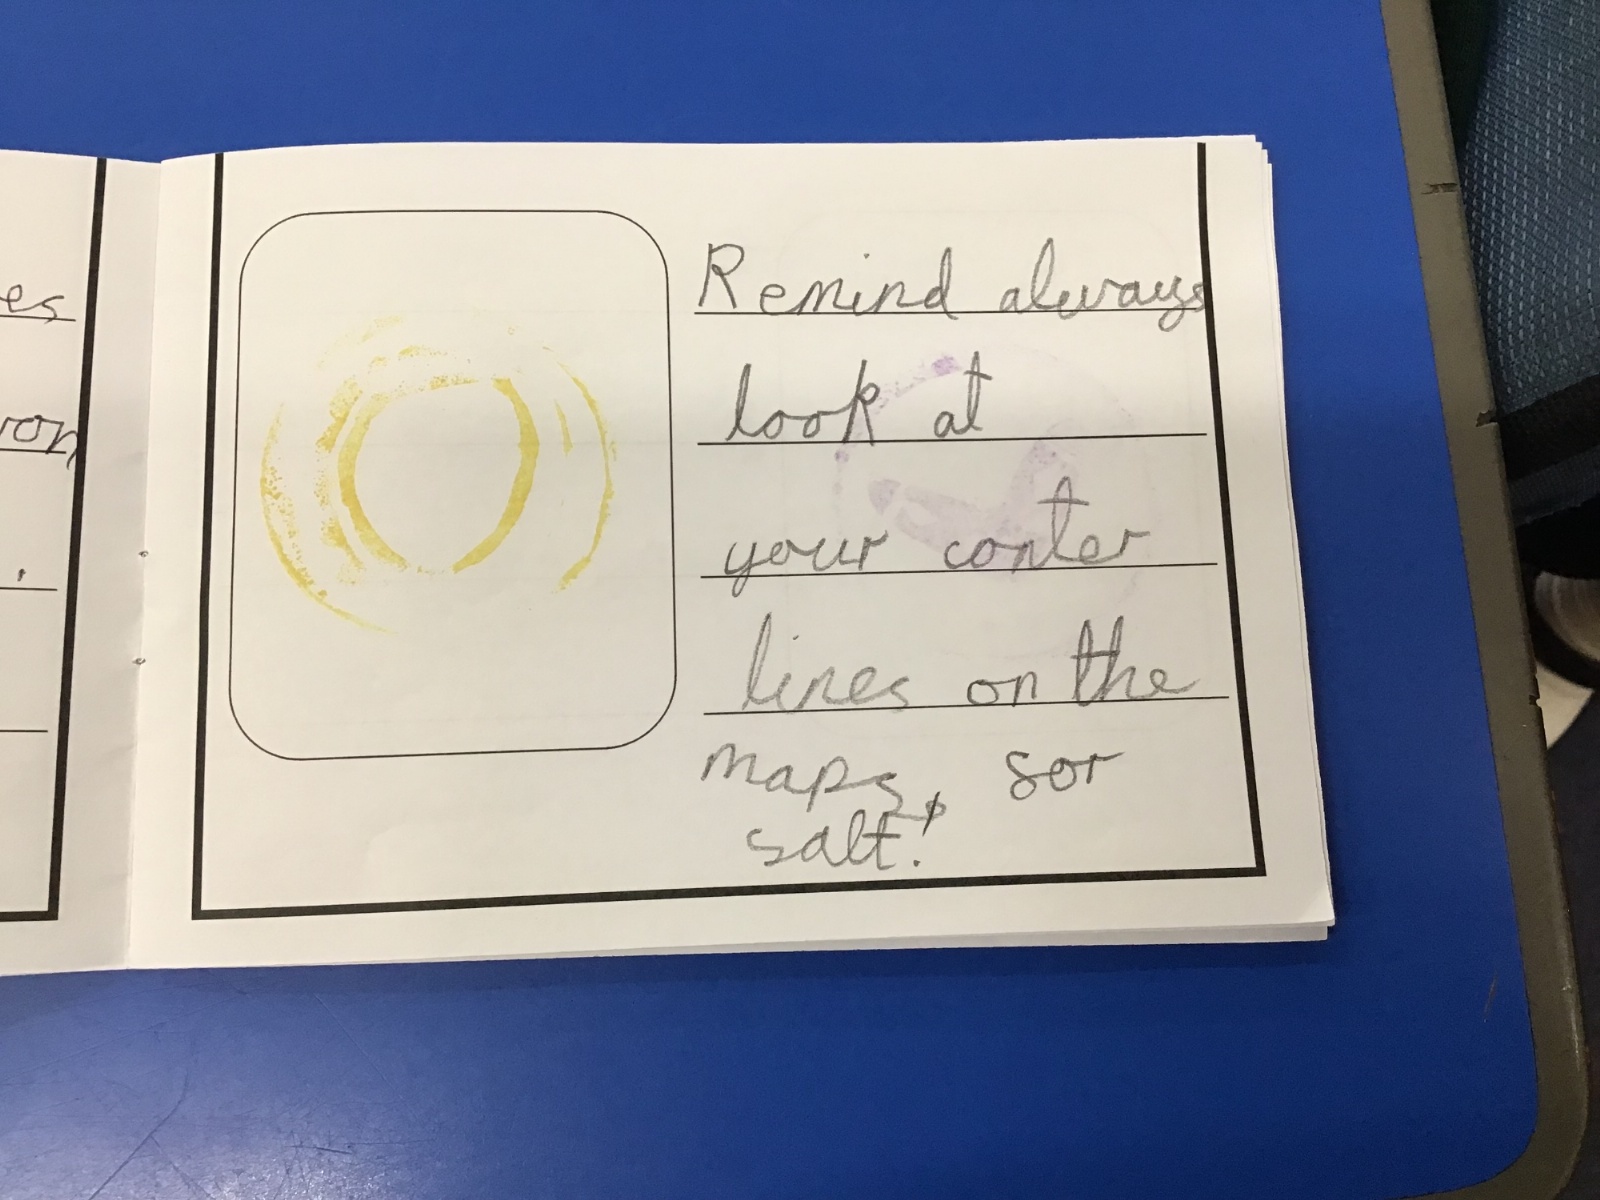 es
Remind always
look at
your conter
lines on the
maps, sor
salt!